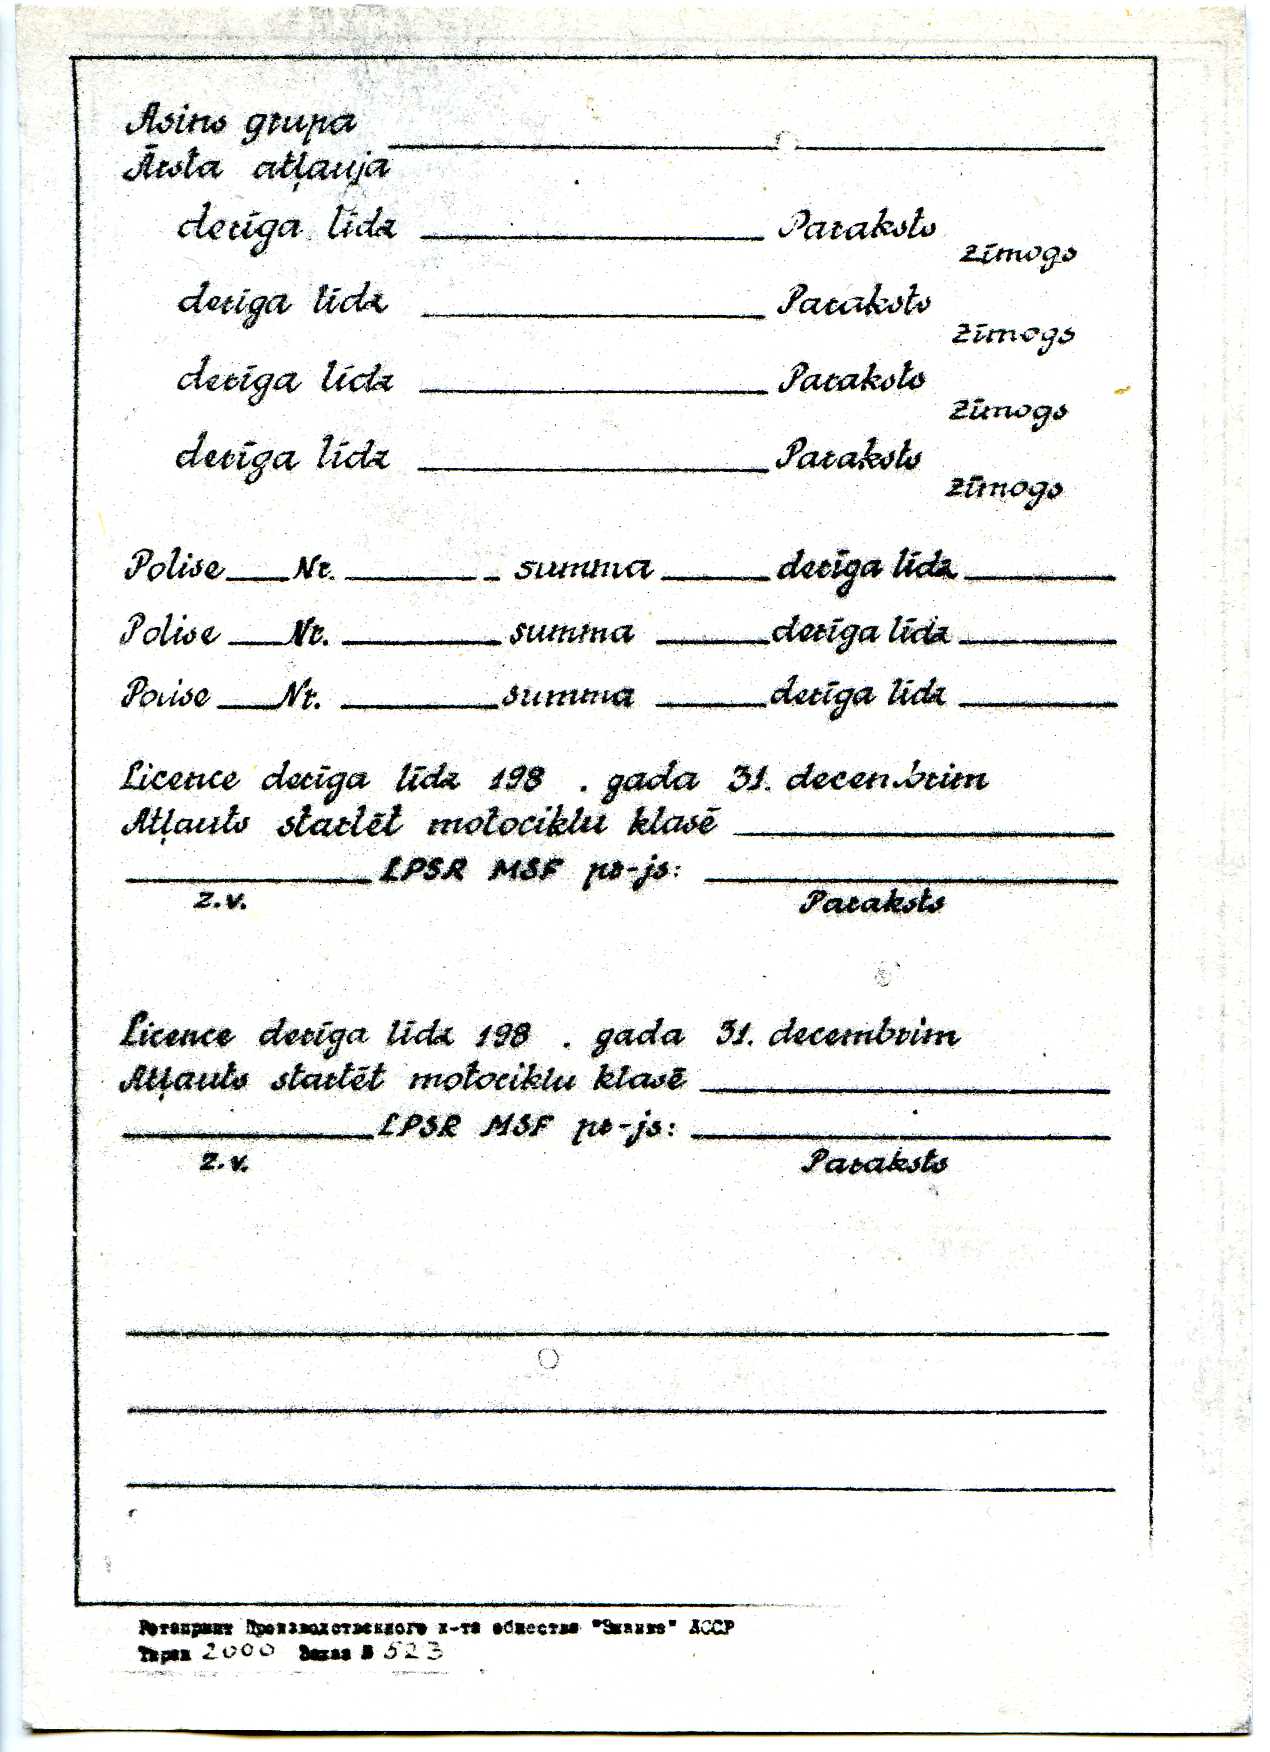 Asins grupa
Ārsta atļauja
derīga līdz Paraksts
zīmogs
derīga līdz Paraksts
zīmogs
derīga līdz Paraksts
zīmogs
derīga līdz Paraksts
zīmogs
Polise Nr. summa derīga līdz
Polise Nr. summa derīga līdz
Polise Nr. summa derīga līdz
Licence derīga līdz 198 . gada 31. decembrim
Atļauts startēt motociklu klasē
LPSR MSF pr-js:
z.v. Paraksts
Licence derīga līdz 198 . gada 31. decembrim
Atļauts startēt motociklu klasē
LPSR MSF pr-js:
z.v. Paraksts
Ротапринт Производственного к-та общества "Знание"
Тираж 2000 Заказ № 523